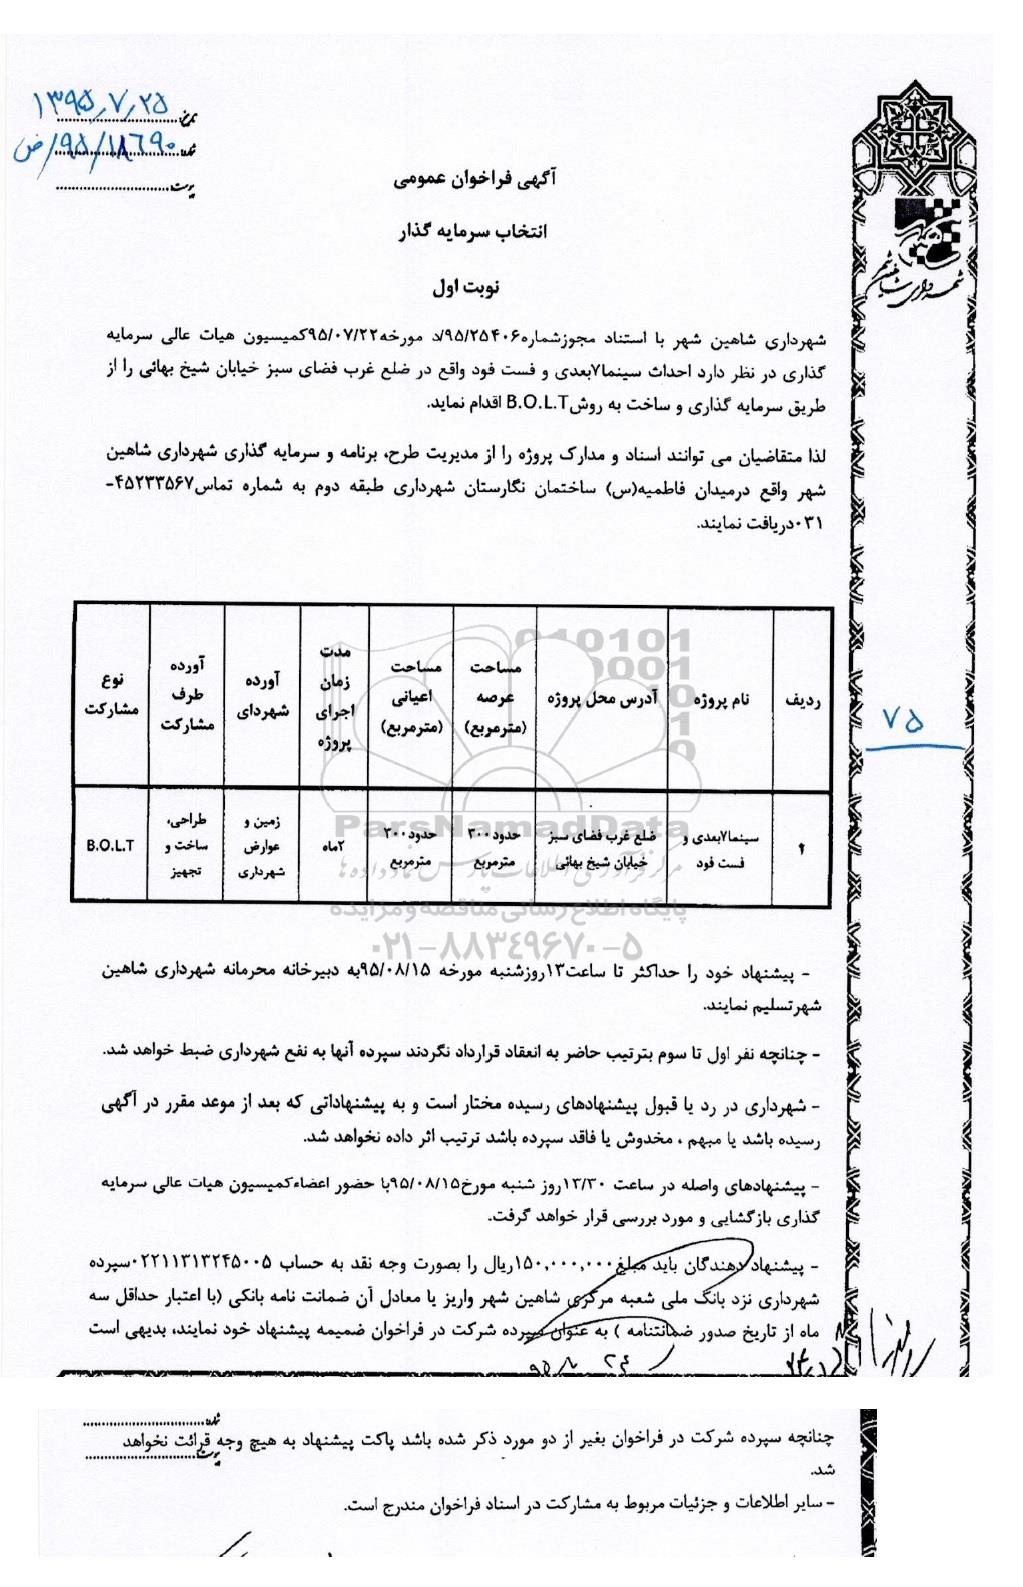 تاریخ: ۱۳۹۵٫۷٫۲۵
شماره: ۹۵/۱۸۶۹۰/ض
پیوست:
شهرداری شاهین شهر
آگهی فراخوان عمومی
انتخاب سرمایه گذار
نوبت اول
شهرداری شاهین شهر با استناد مجوزشماره۹۵/۲۵۴۰۶/د مورخه۹۵/۰۷/۲۲کمیسیون هیات عالی سرمایه
گذاری در نظر دارد احداث سینما۷بعدی و فست فود واقع در ضلع غرب فضای سبز خیابان شیخ بهائی را از
طریق سرمایه گذاری و ساخت به روشB.O.L.T اقدام نماید.
لذا متقاضیان می توانند اسناد و مدارک پروژه را از مدیریت طرح، برنامه و سرمایه گذاری شهرداری شاهین
شهر واقع درمیدان فاطمیه(س) ساختمان نگارستان شهرداری طبقه دوم به شماره تماس۴۵۲۳۳۵۶۷-
۰۳۱دریافت نمایند.
ردیف | نام پروژه | آدرس محل پروژه | مساحت عرصه (مترمربع) | مساحت اعیانی (مترمربع) | مدت زمان اجرای پروژه | آورده شهردای | آورده طرف مشارکت | نوع مشارکت
۱ | سینما۷بعدی و فست فود | ضلع غرب فضای سبز خیابان شیخ بهائی | حدود۳۰۰ مترمربع | حدود۳۰۰ مترمربع | ۲ماه | زمین و عوارض شهرداری | طراحی، ساخت و تجهیز | B.O.L.T
۷۵
ParsNamadData
مرکز فرآوری اطلاعات پارس نماد داده ها
پایگاه اطلاع رسانی مناقصه و مزایده
۰۲۱-۸۸۳۴۹۶۷۰-۵
- پیشنهاد خود را حداکثر تا ساعت۱۳روزشنبه مورخه ۹۵/۰۸/۱۵به دبیرخانه محرمانه شهرداری شاهین
شهرتسلیم نمایند.
- چنانچه نفر اول تا سوم بترتیب حاضر به انعقاد قرارداد نگردند سپرده آنها به نفع شهرداری ضبط خواهد شد.
- شهرداری در رد یا قبول پیشنهادهای رسیده مختار است و به پیشنهاداتی که بعد از موعد مقرر در آگهی
رسیده باشد یا مبهم ، مخدوش یا فاقد سپرده باشد ترتیب اثر داده نخواهد شد.
- پیشنهادهای واصله در ساعت ۱۳/۳۰روز شنبه مورخ۹۵/۰۸/۱۵با حضور اعضاءکمیسیون هیات عالی سرمایه
گذاری بازگشایی و مورد بررسی قرار خواهد گرفت.
- پیشنهاد دهندگان باید مبلغ۱۵۰,۰۰۰,۰۰۰ریال را بصورت وجه نقد به حساب ۰۲۲۱۱۳۱۳۲۴۵۰۰۵سپرده
شهرداری نزد بانک ملی شعبه مرکزی شاهین شهر واریز یا معادل آن ضمانت نامه بانکی (با اعتبار حداقل سه
ماه از تاریخ صدور ضمانتنامه ) به عنوان سپرده شرکت در فراخوان ضمیمه پیشنهاد خود نمایند، بدیهی است
شماره:
چنانچه سپرده شرکت در فراخوان بغیر از دو مورد ذکر شده باشد پاکت پیشنهاد به هیچ وجه قرائت نخواهد
پیوست:
شد.
- سایر اطلاعات و جزئیات مربوط به مشارکت در اسناد فراخوان مندرج است.